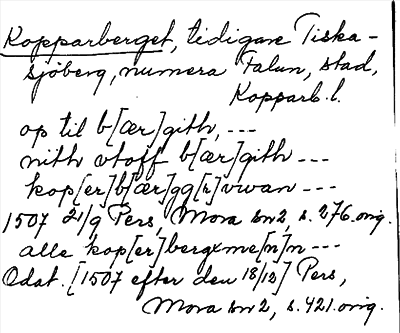 Kopparberget, tidigare Tiska-
sjöberg, numera Falun, stad,
Kopparb. l.
op til b[ær]gith, ---
nith vtoff b[ær]gith ---
kop[er]b[ær]gg[z] vwan ---
1507 21/9 Pers, Mora sn 2, s. 276. orig.
alle kop[er]bergxme[n]n ---
Odat. [1507 efter den 18/12] Pers,
Mora sn 2, s. 421. orig.